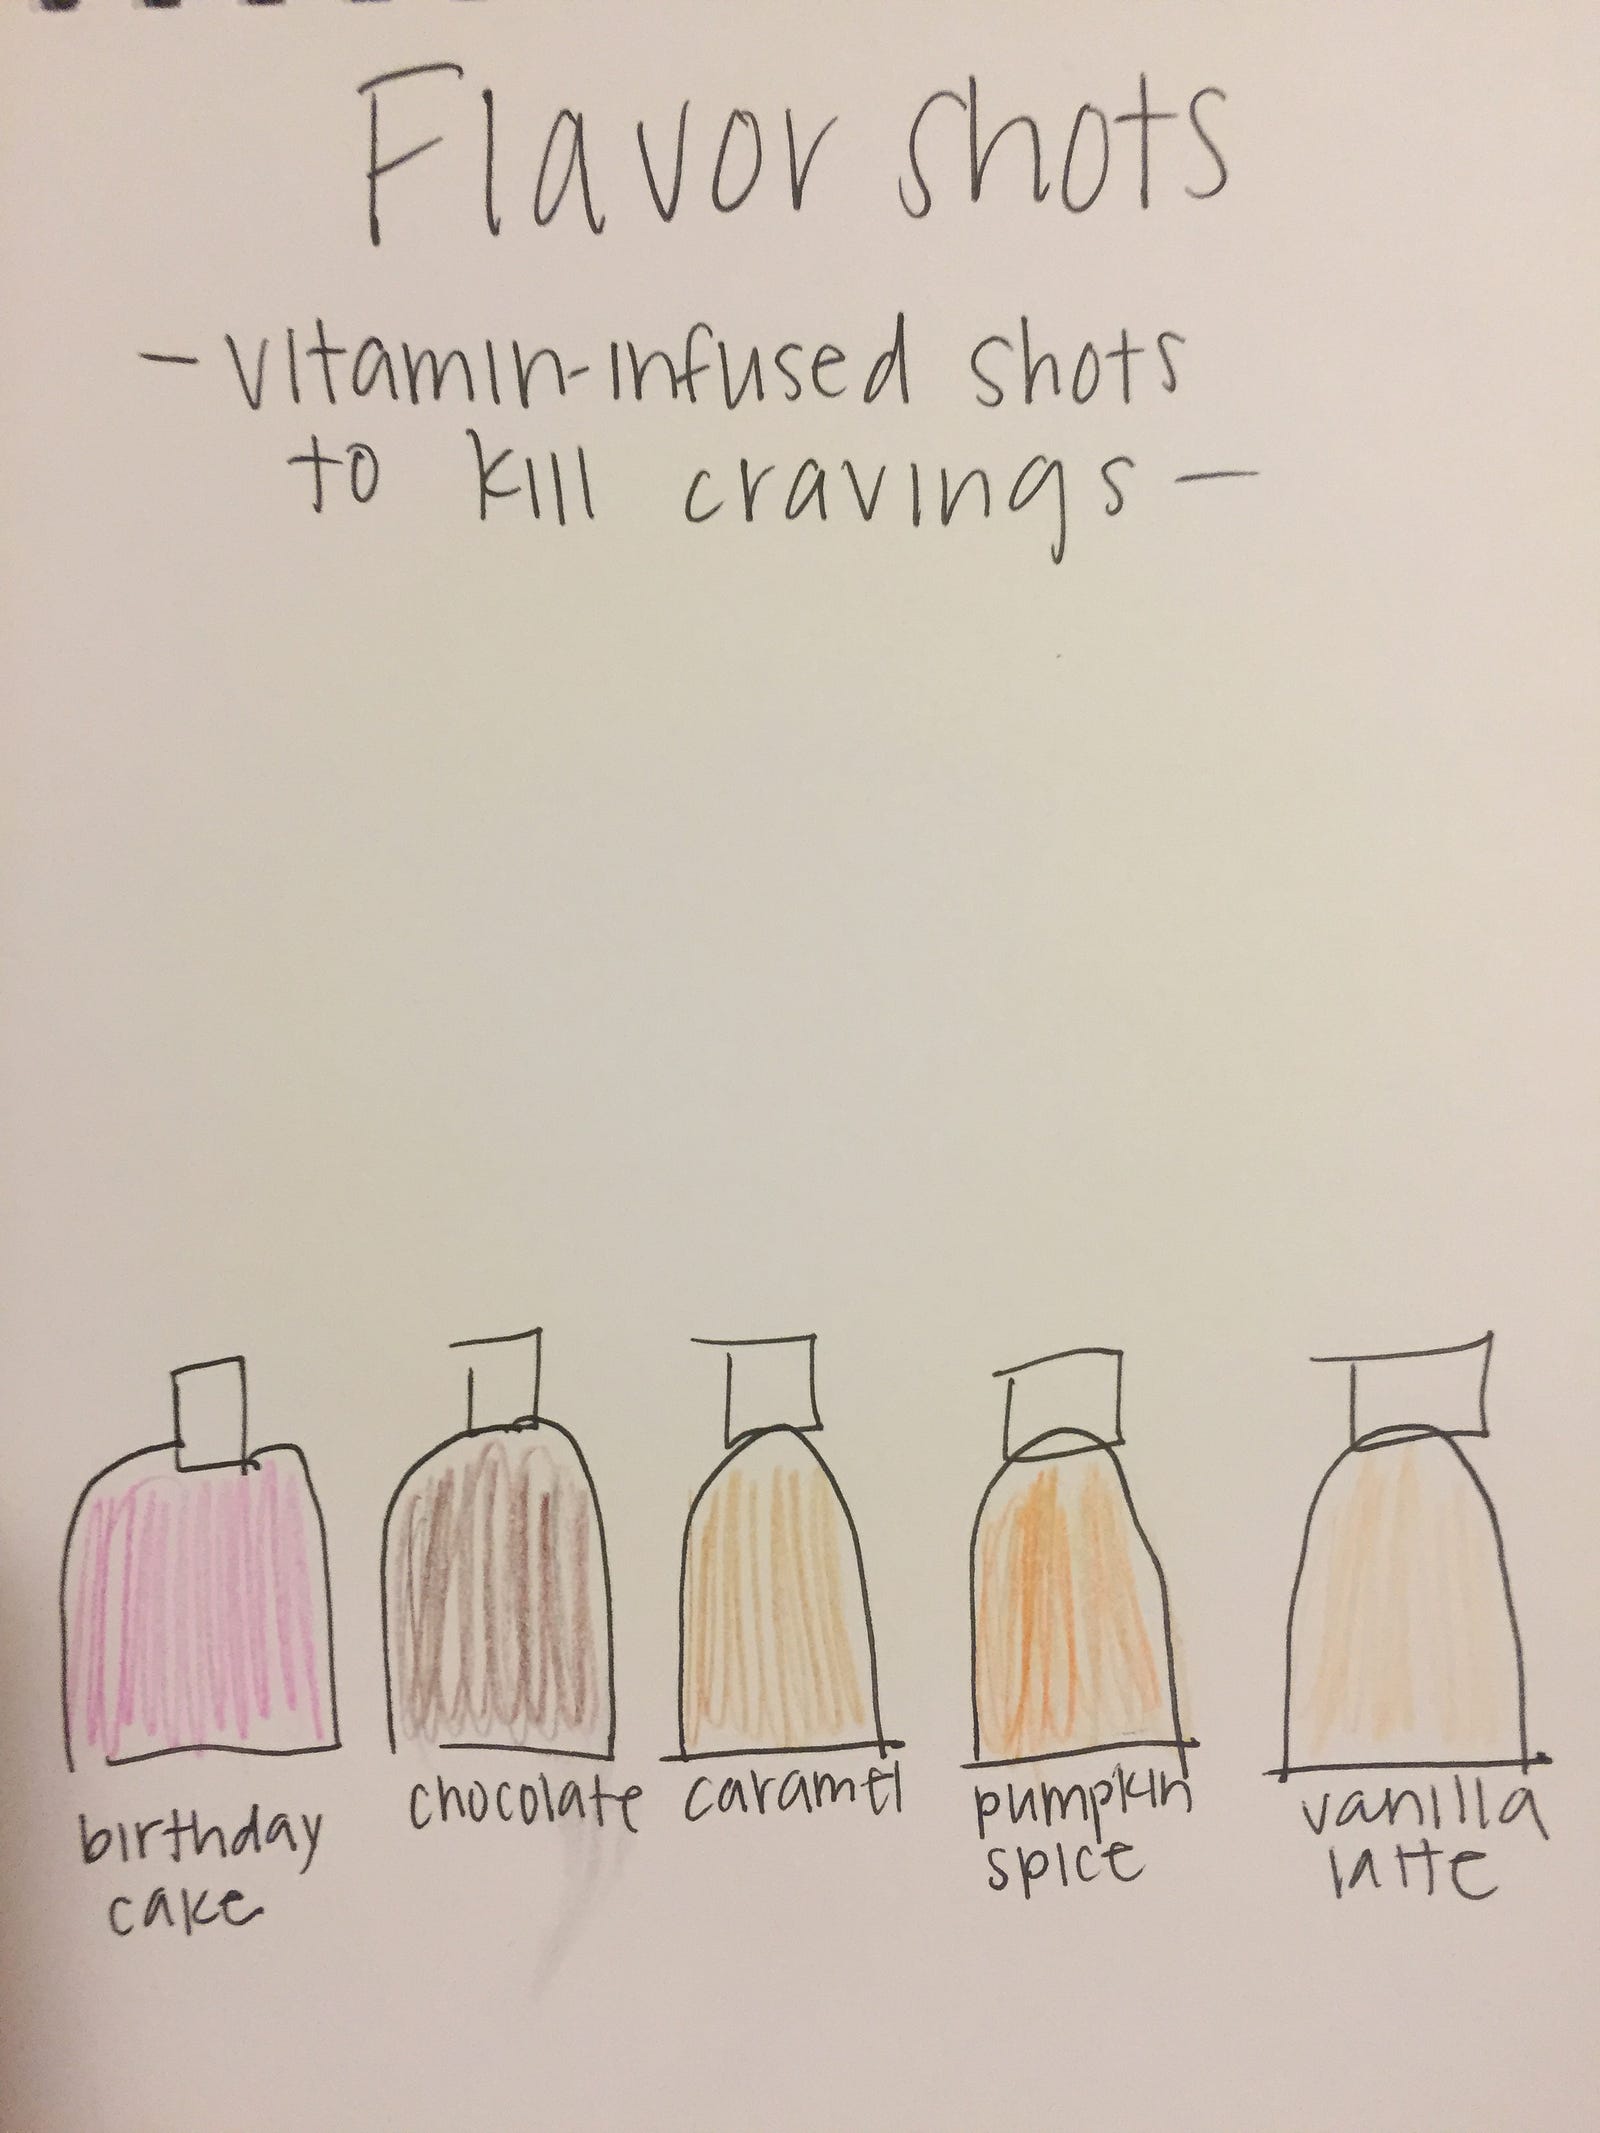 Flavor shots
- vitamin-infused shots
to kill cravings -
birthday
cake
chocolate
caramel
pumpkin
spice
vanilla
latte